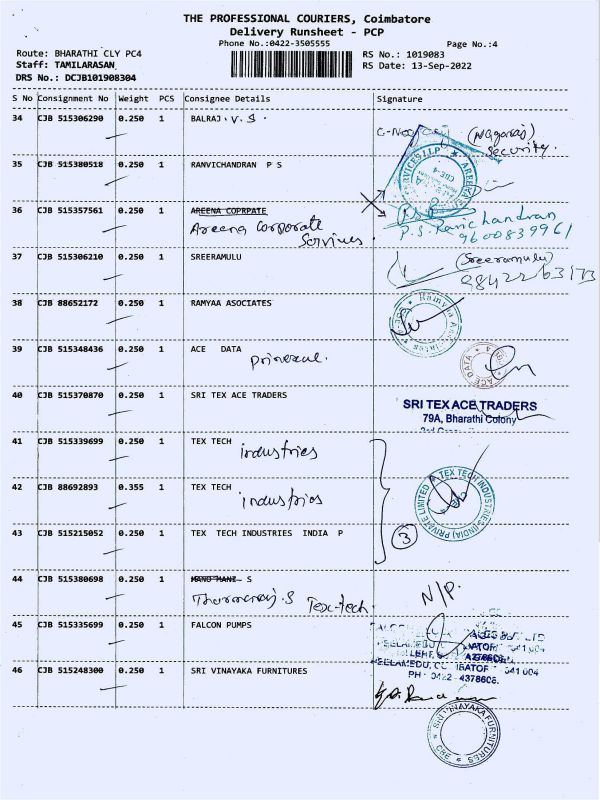 THE PROFESSIONAL COURIERS, Coimbatore
Delivery Runsheet - PCP
Phone No.:0422-3505555
Page No.:4
Route: BHARATHI CLY PC4
RS No.: 1019083
Staff: TAMILARASAN
RS Date: 13-Sep-2022
DRS No.: DCJB101908304
S No Consignment No Weight PCS Consignee Details Signature
34 CJB 515306290 0.250 1 BALRAJ. V. S.
(Nagaraj)
Security.
35 CJB 515380518 0.250 1 RANVICHANDRAN P S
36 CJB 515357561 0.250 1 AREENA COPRPATE
Areena Corporate
P.S. Ravichandran
9600839961
37 CJB 515306210 0.250 1 SREERAMULU
(Sreeramulu)
38 CJB 88652172 0.250 1 RAMYAA ASOCIATES
39 CJB 515348436 0.250 1 ACE DATA
ACE DATA
40 CJB 515370870 0.250 1 SRI TEX ACE TRADERS
SRI TEX ACE TRADERS
79A, Bharathi Colony
41 CJB 515339699 0.250 1 TEX TECH
industries
42 CJB 88692893 0.355 1 TEX TECH
industries
TEX TECH INDUSTRIES (INDIA) PRIVATE LIMITED
43 CJB 515215052 0.250 1 TEX TECH INDUSTRIES INDIA P
3
44 CJB 515380698 0.250 1 S
Tex-tech.
N/P.
45 CJB 515335699 0.250 1 FALCON PUMPS
PH - 0422-4378608.
46 CJB 515248300 0.250 1 SRI VINAYAKA FURNITURES
SRI VINAYAKA FURNITURES
CBE